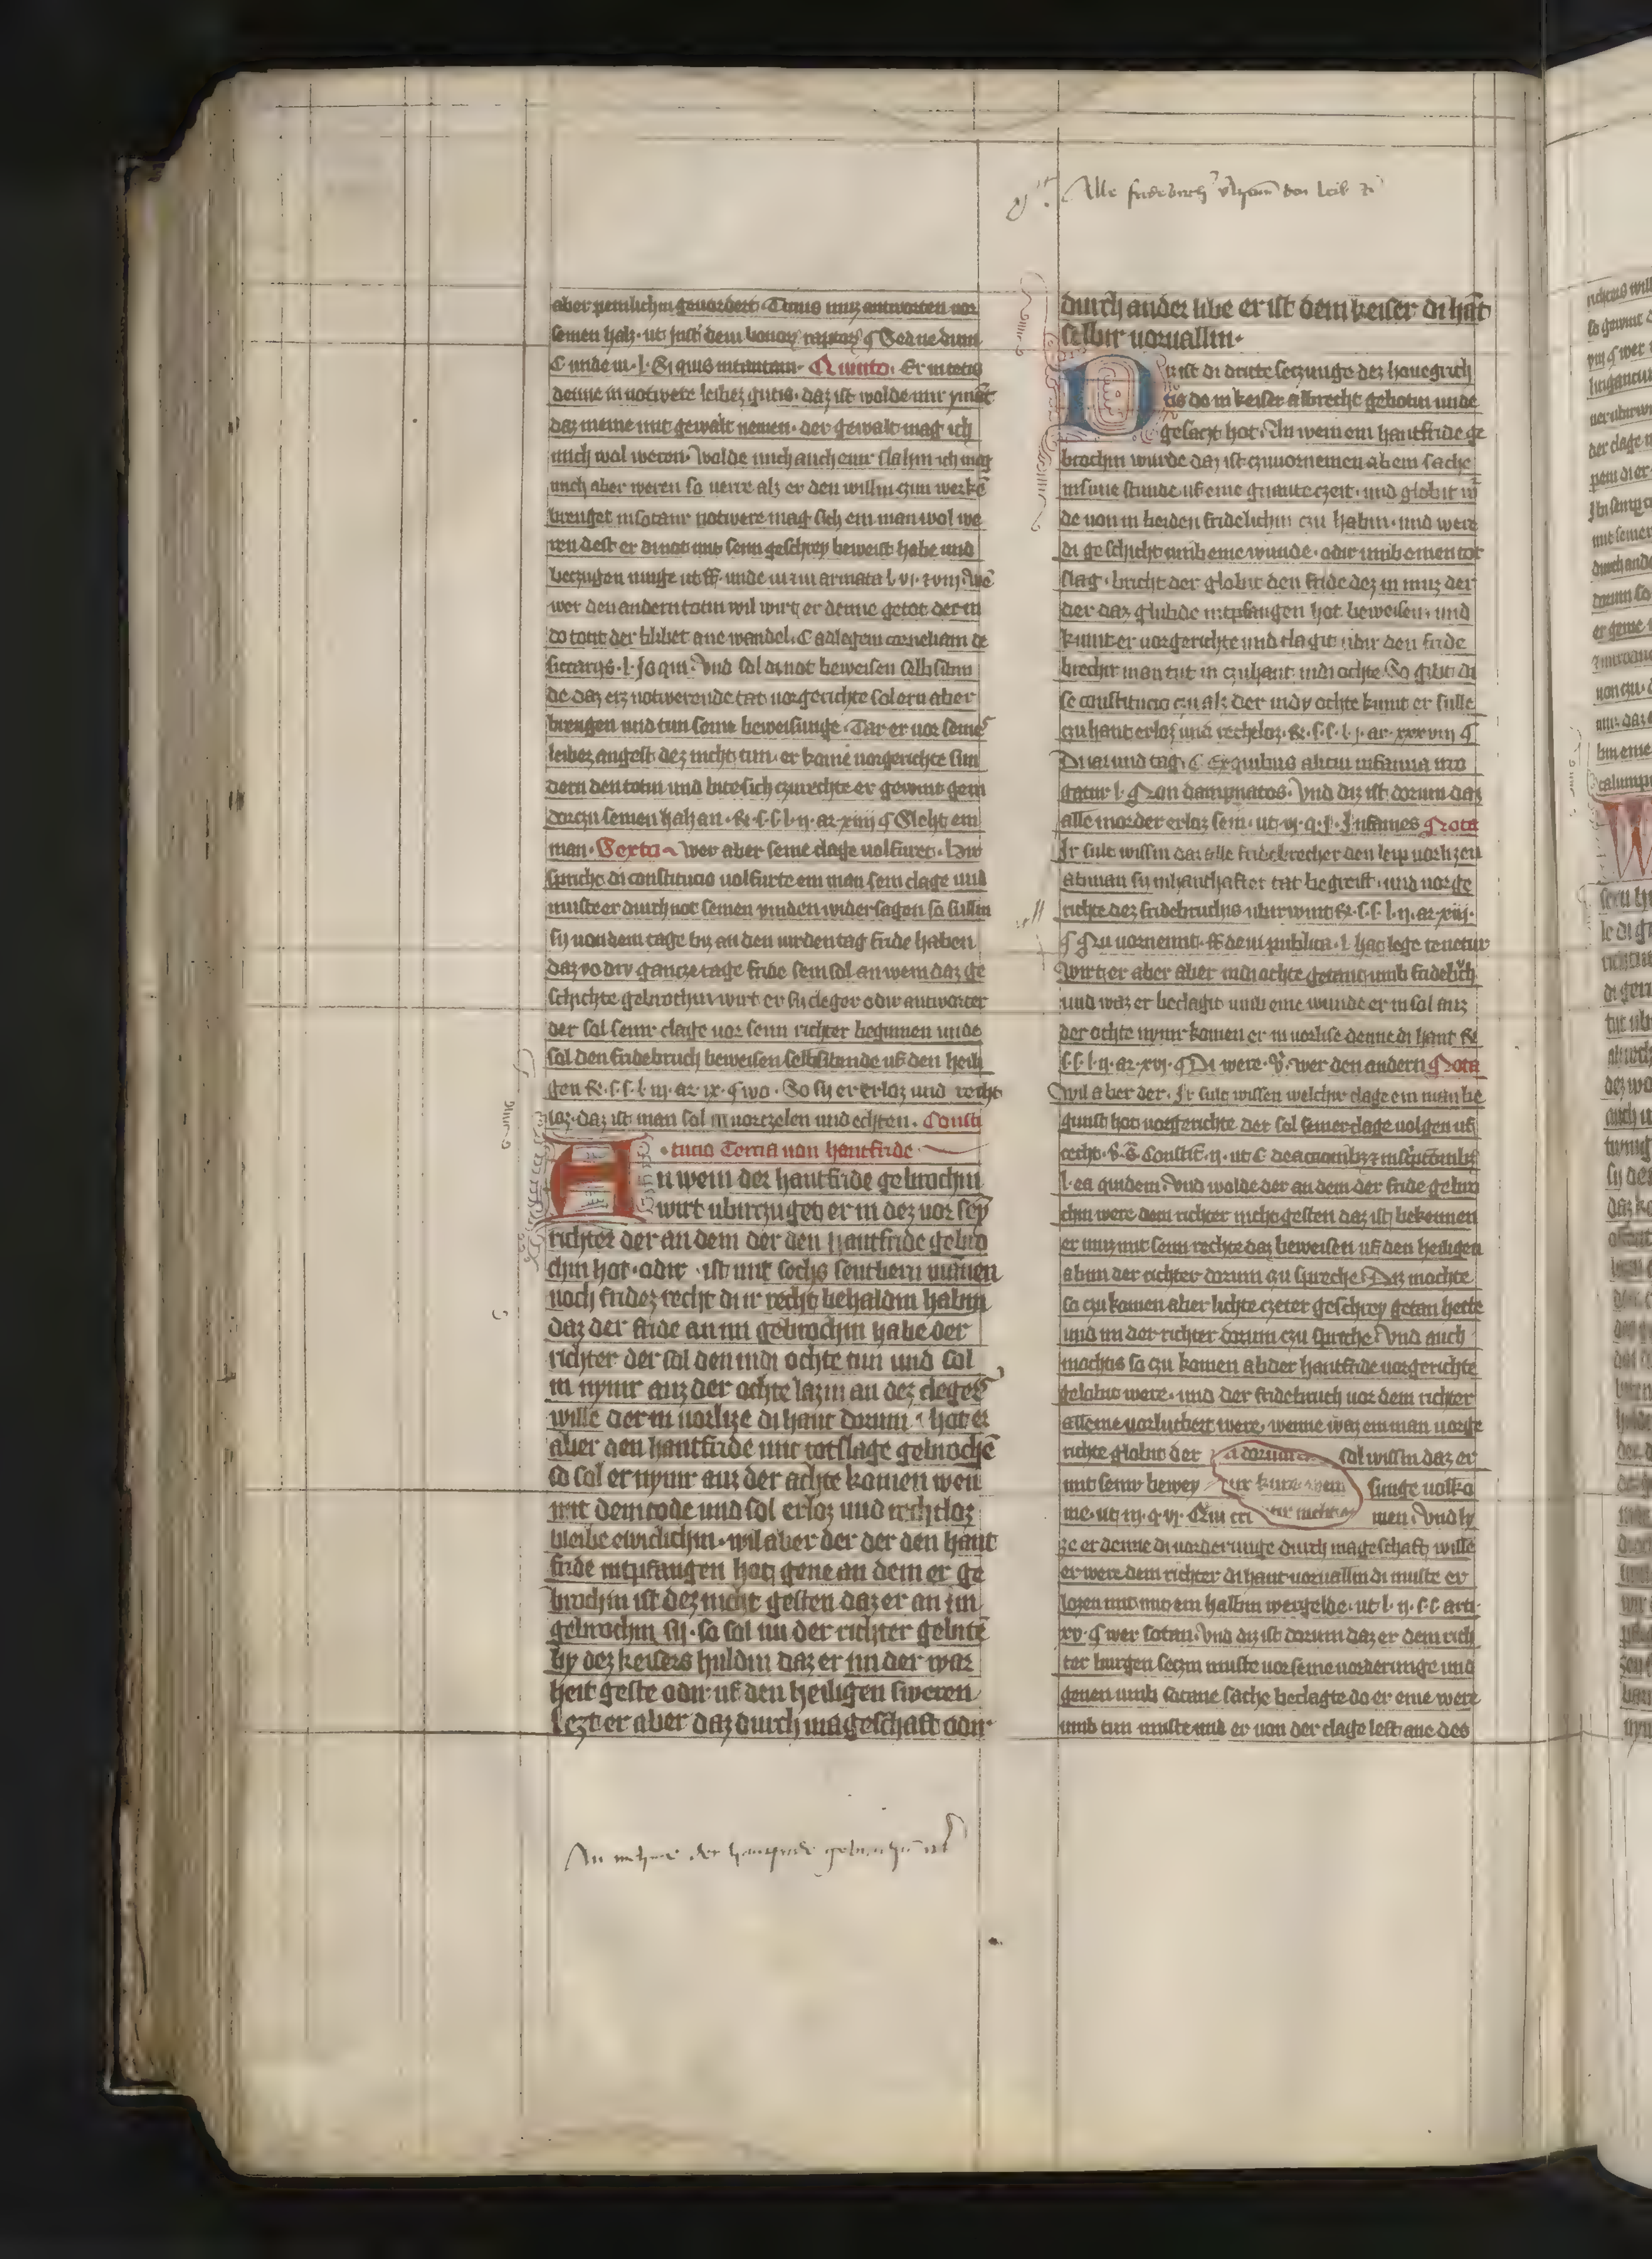 Alle fridebrech den leib
aber pemlichin geuordert. Timus muz antworten vor
seinen halz. ut Insti. de in bonor raptor § Sed ne dum
C unde vi. l. Si quis intantam. Quinto. Er intetis
denne in notwere leibez gutis. daz ist wolde mir ymāt
daz meine mit gewalt nemen. der gewalt mag ich
mich wol weren. Wolde mich auch einir slahin ich mag
mich aber weren so verre alz er den willin czun werkē
brenget insotanr notwere mag sich ein man wol we
ren dest er di not mit seim geschrey beweist habe und
beczugen muge ut ff. unde vi et vi armata l. vi. et vim. We
wer den andern totin wil wirt er denne getot der in
do totit der blibet ane wandel. C ad legem corneliam de
siccariis. l. Is qui. Und sal di not beweisen selbsibin
de daz erz notwerende tat. vorgerichte sol ern aber
brengen und tun seine beweisunge. Tar er vor seinez
leibez angest dez nicht tun. er kome vorgerichte sun
dern den totin und bite sich czurechte er gewint gein
dorczu seinen halz an. R. s. s. l. ii. ar. xiiii § Slehit ein
man. Sexto wer aber seine clage volfuret. hiw
spricht di constitucio volfurte ein man sein clage und
muste er durch not seinen vinden widersagen so sullin
sy von dem tage biz an den virden tag fride haben
daz vo driv gancze tage fride sein sal an wem daz ge
schichte gebrochin wirt er sy cleger odir antworter
der sal seinr clage vor seim richter beginnen unde
sal den fridebruch beweisen selbsibende uf den heili
gen R. s. s. l. iii. ar. ix. § wo. So sy er erloz und recht
loz. daz ist man sal in vorczelen und echten. Consti
tucio Tercia von hantfride
An wem der hantfride gebrochin
wirt ubirczuget er in dez vor sey
richter der an dem der den hantfride gebro
chin hot. odir ist mit sechs sentbern mānen
noch fridez recht dur recht behaldin habin
daz der fride an im gebrochin habe der
richter der sal den in di ochte tun und sal
in nymr auz der ochte lazin an dez clegers
wille der in vorlize di hant dorum hot er
aber den hantfride mit totslage gebrochē
so sol er nymr auz der achte komen wen
mit dem tode und sol erloz und rechtloz
bleibe ewiclichin. wil aber der der den hant
fride intpfangen hot gene an dem er ge
brochin ist dez nicht gesten daz er an im
gebrochin sy. so sal im der richter gebite
by dez keisers huldin daz er im der war
heit geste odir uf den heiligen sweren
lezt er aber daz durch mageschaft odir
durch ander libe er ist dem keiser di hāt
selbir vorvallin.
Diz ist di dritte seczunge dez houegrich
tis do in keiser albrecht gebotin unde
gesaczt hot. An wem ein hantfride ge
brochin wurde daz ist czuvornemen ab ein sache
insune stunde uf eine gnante czeit. und globit w
de von in beiden fridelichin czu habin. und were
di geschicht umb eine wunde. odir umb einen tot
slag. bricht der globir den fride dez in muz der
der daz glubde intpfangen hot beweisen. und
kumt er vorgerichte und clagit ubir den fride
brechir man tut in czuhant indi ochte So gibt di
se constitucio czu alz der indy ochte kumt er sulle
czu hant erloz und rechtloz. R. s. s. l. j. ar. xxxviij §
Di iar und tag. C Ex quibus alicui infamia irro
gatur l. Non dampnatos. Und diz ist dorum daz
alle morder erloz sein. ut. vj. q. j. Infames Nota
Ir sult wissin daz alle fridebrecher den leip vorlizen
ab man sy inhanthafter tat begreift. und vorge
richte dez fridebruchis ubirwint R. s. s. l. ii. ar. xiij.
§ Nu vornemit. ff de vi publica. l. hac lege tenetur
Wirt er aber aber indi ochte getan umb fridebch
und waz er beclagit umb eine wunde er in sal auz
der ochte nymr komen er in vorlise denne di hant R
s. s. l. ii. ar. xvj. § Di were. V. wer den andern Nota
wil aber der. Ir sult wissen welchir clage ein man be
ginst hot vorgerichte der sol seiner clage volgen uf
recht. V. G. Constit. ii. ut C de accusationibus et inscriptionibus
l. ea quidem. Und wolde der an dem der fride gebro
chin were dem richter nicht gesten daz ist bekennen
er muz mit seim rechte daz beweisen uf den heiligen
ab im der richter dorum czu spreche Diz mochte
so czu komen aber lichte czeter geschrey getan hette
und im der richter dorum czu spreche. Und auch
mochtis so czu komen ab der hantfride vorgerichte
gelobit were. und der fridebruch vor dem richter
alleine vorlutbert were. wenne waz ein man vorge
richte globit der sal wissin daz er
mit seinr bewey sunge volko
me. ut. iii. q. vj. Qui cri men. Und ly
ze er denne di vorderunge durch mageschaft wille
er were dem richter di hant vorvallin di muste er
lozen mit mit eim halbin wergelde. ut. l. ii. s. s. arti.
xv. § wer sotan. Und diz ist dorum daz er dem rich
ter burgen seczin muste vor seine vorderunge und
genen umb sotane sache beclagte do er eine were
umb tun muste und er von der clage lest ane des
An der hantfride gebrochin